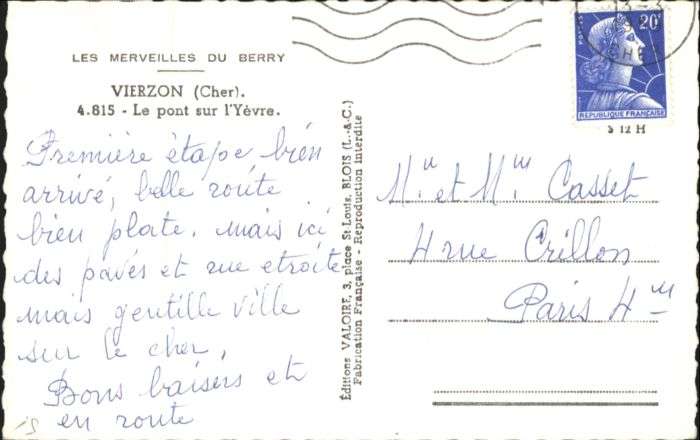 LES MERVEILLES DU BERRY
VIERZON (Cher).
4.815 - Le pont sur l'Yèvre.
Première étape bien
arrivé, belle route
bien plate. mais ici
des pavés et rue etroite
mais gentille ville
sur le cher,
Bons baisers et
en route
Éditions VALOIRE, 3, place St. Louis, BLOIS (L.-&-C.)
Fabrication Française - Reproduction Interdite
20F
POSTES
REPUBLIQUE FRANÇAISE
CHE
S 12 H
et Casset
4 rue Crillon
Paris 4